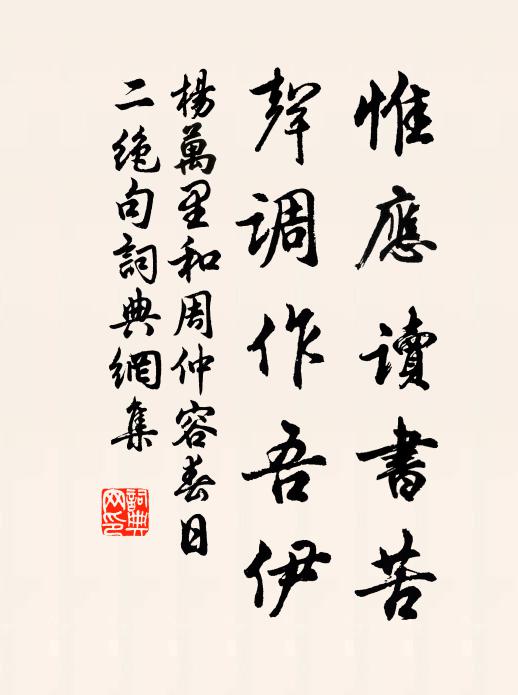 惟應讀書苦
聲調作吾伊
楊萬里和周仲容春日
二絕句詞典網集
詞典
网印